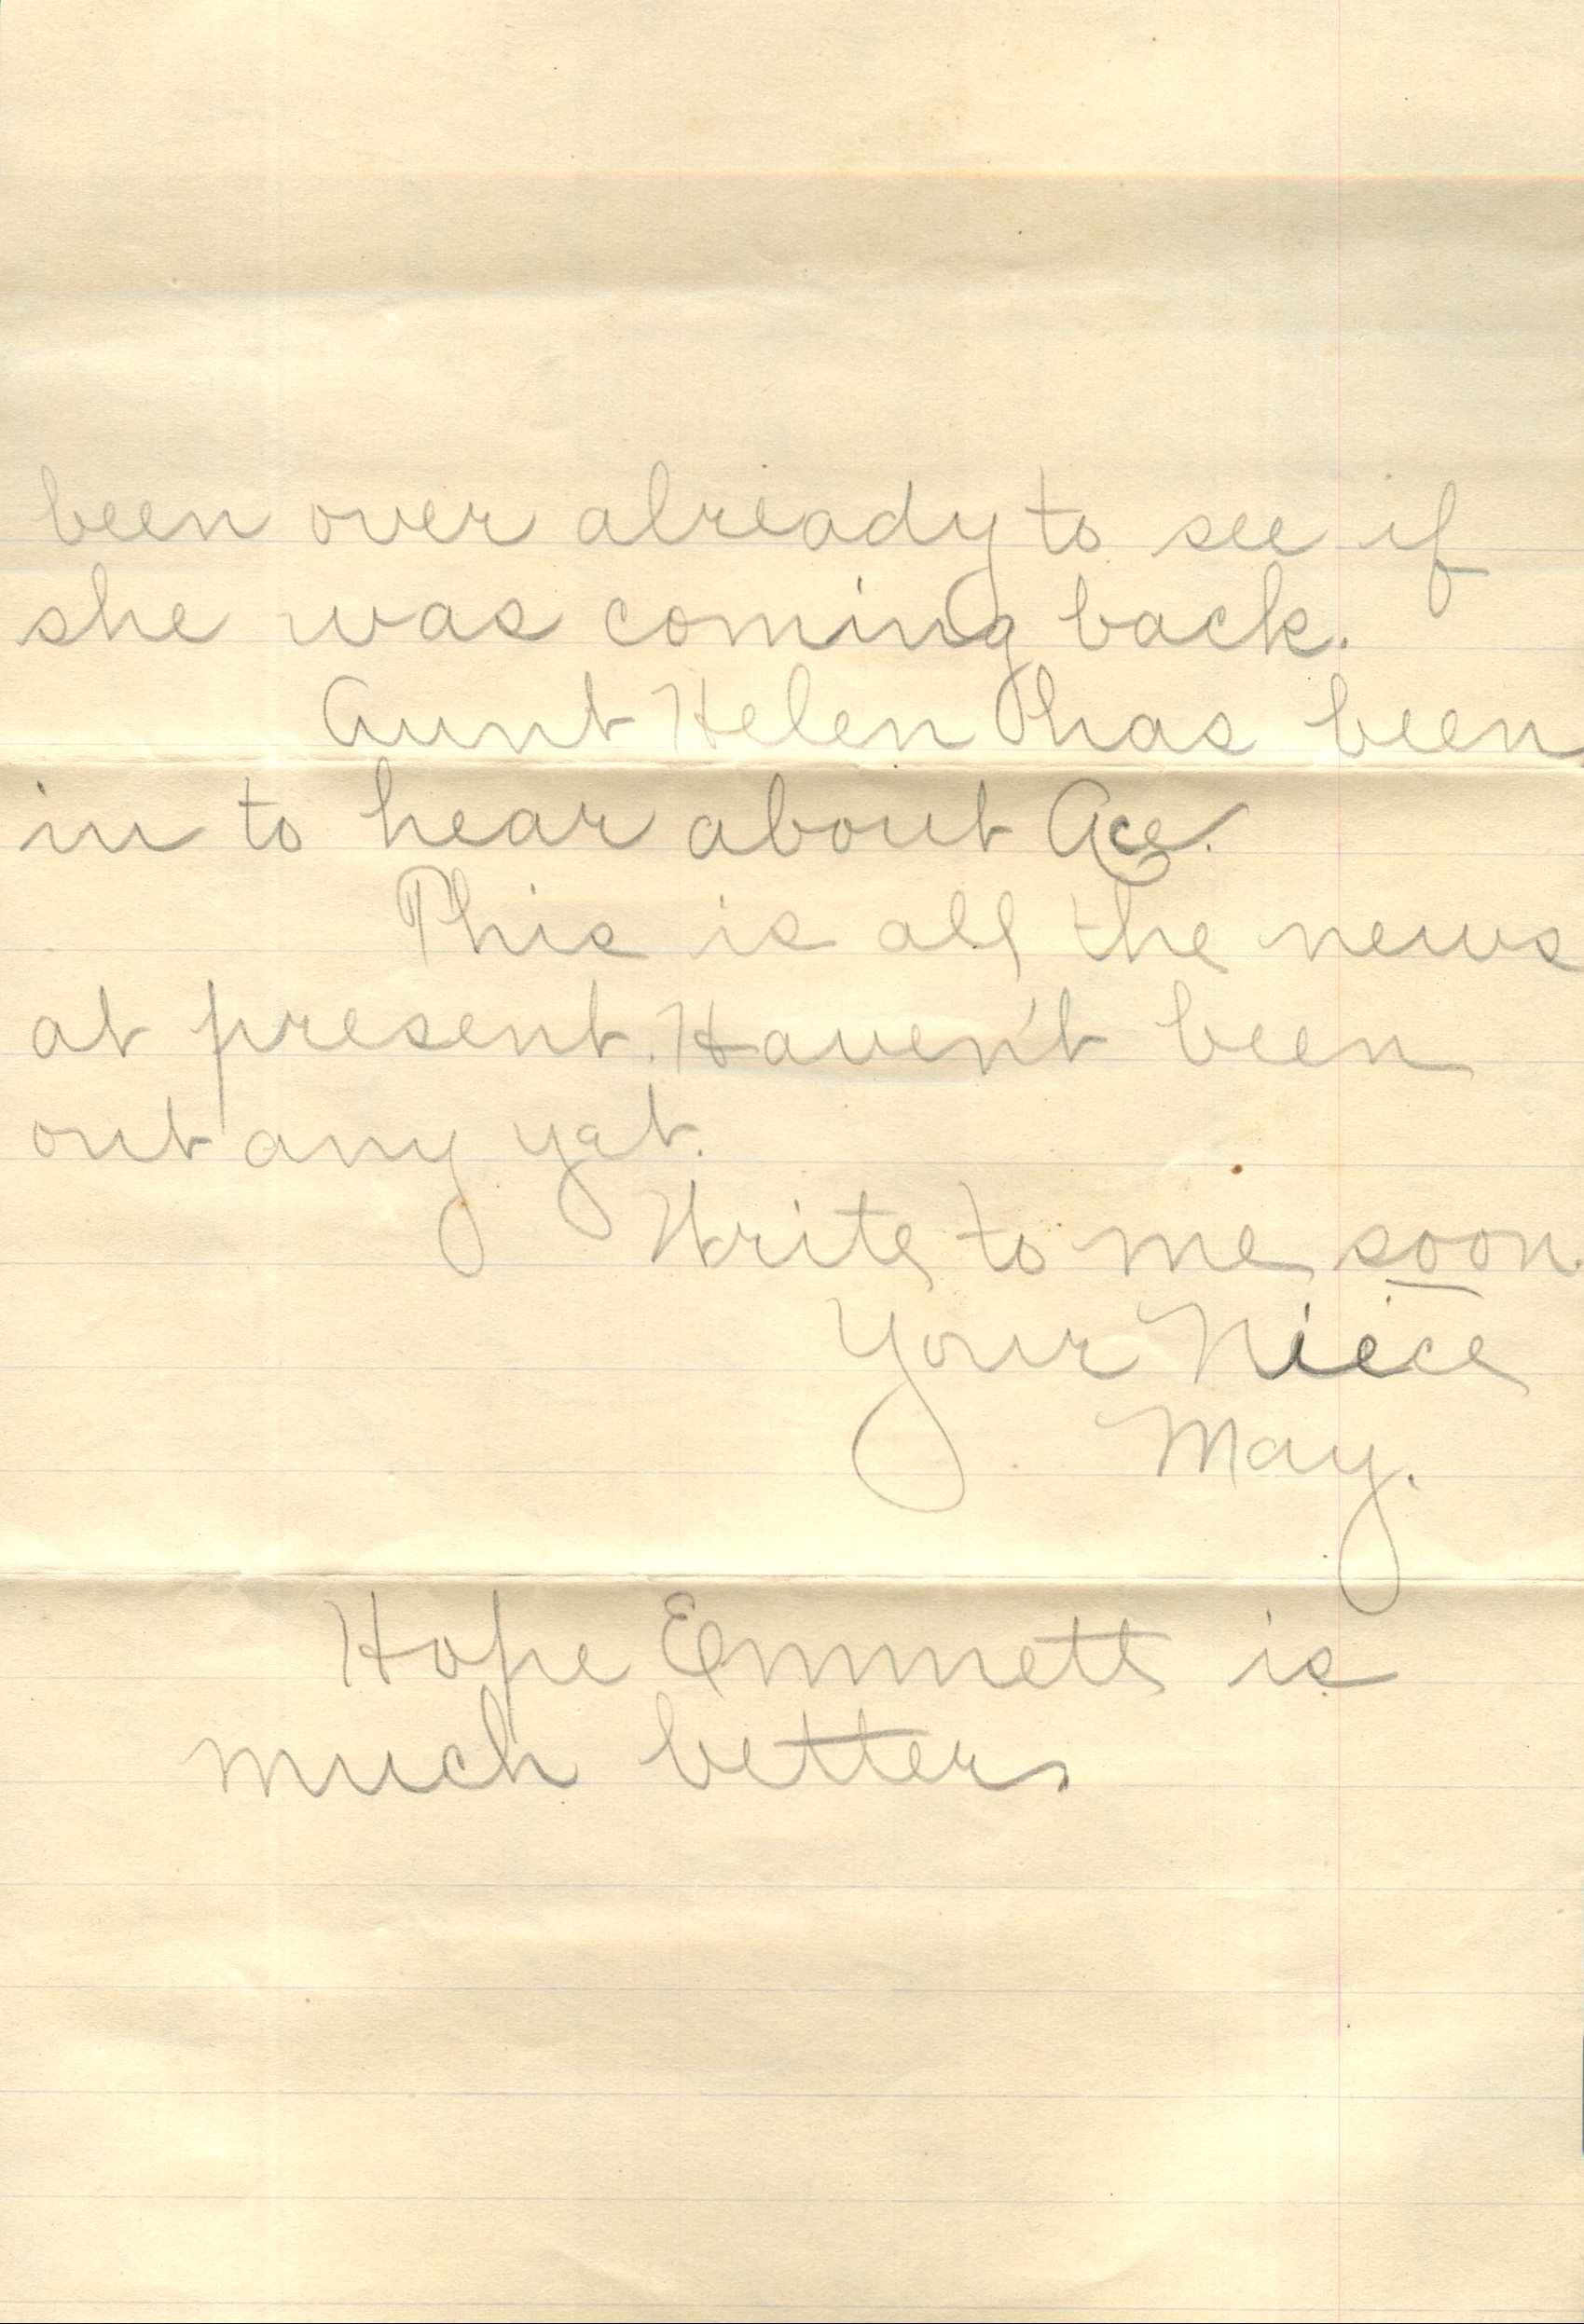 been over already to see if
she was coming back.
Aunt Helen has been
in to hear about Ace.
This is all the news
at present. Haven't been
out any yet.
Write to me soon.
Your Niece
May.
Hope Emmett is
much better.